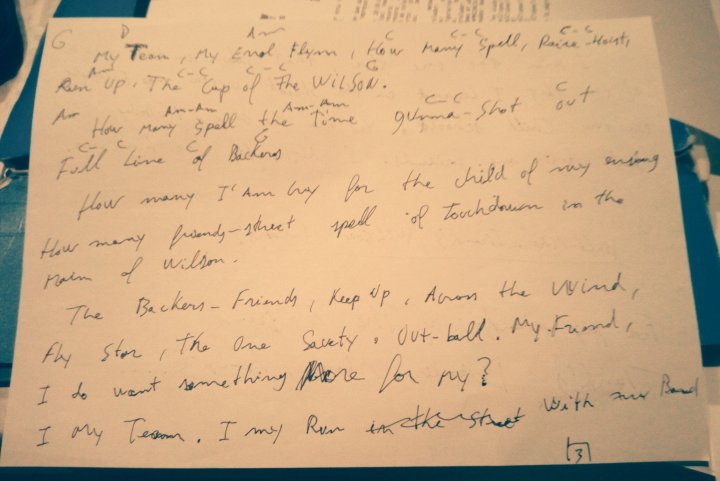 G D Am
My Team, My Errol Flynn, How Many Spell, Raise-Hoist,
Am C-C C-C G
Run Up. The Cup of The WILSON.
Am Am-Am Am-Am C-C C
How Many Spell the Time gunna-Shot out
C-C C G
Full Line of Backers
How many I'Am Guy for the child of my
How many friends-street spell of Touchdown in the
Main of Wilson.
The Backers-Friends, Keep Up, Across the Wind,
Fly Star, The One Savety. Out-ball. My Friend,
I do want something More for My?
I My Team. I my Run in the Street With my Band
3